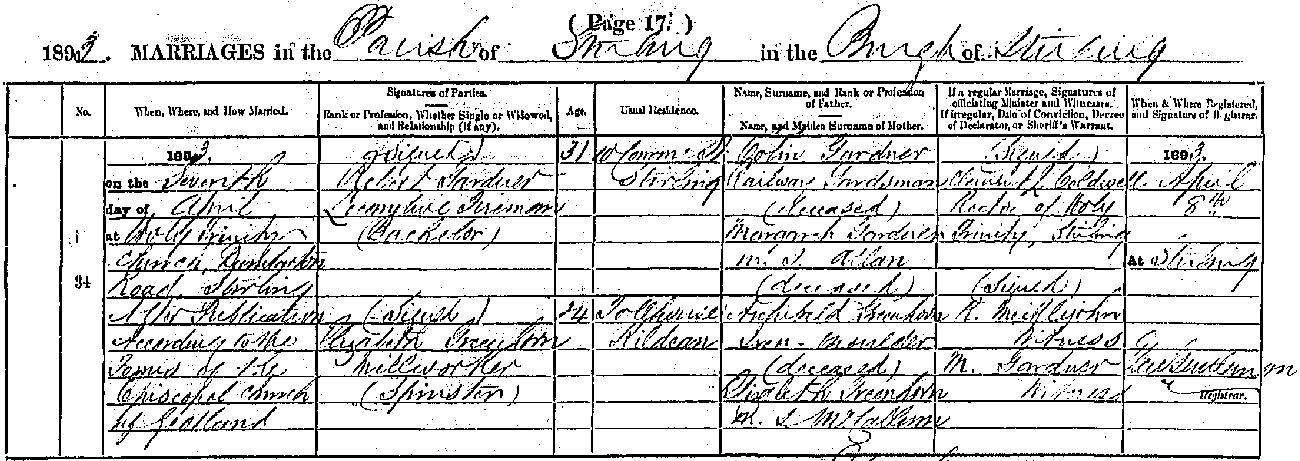 ( Page 17. )
1893. MARRIAGES in the Parish of Stirling in the Burgh of Stirling
No.
When, Where, and How Married.
Signatures of Parties.
Rank or Profession, Whether Single or Widowed, and Relationship (if any).
Age.
Usual Residence.
Name, Surname, and Rank or Profession of Father.
Name, and Maiden Surname of Mother.
If a regular Marriage, Signatures of officiating Minister and Witnesses.
If irregular, Date of Conviction, Decree of Declarator, or Sheriff's Warrant.
When & Where Registered, and Signature of Registrar.
34
1893.
on the Seventh
day of April
at Holy Trinity
Church, Dumbarton
Road, Stirling
After Publication
According to the
Forms of the
Episcopal Church
of Scotland
(Signed)
Robert Gardner
Locomotive Fireman
(Bachelor)
(Signed)
Elizabeth Greenhorn
Millworker
(Spinster)
31
24
Stirling
Kildean
Colin Gardner
Railway Guardsman
(deceased)
Margaret Gardner
m. s. Allan
(deceased)
Archibald Greenhorn
Iron-moulder
(deceased)
Elizabeth Greenhorn
m. s. McCallum
(Signed)
Caldwell
Rector of Holy
Trinity, Stirling
(Signed)
Witness
M. Gardner
Witness
1893.
April
8th
At Stirling
Registrar.